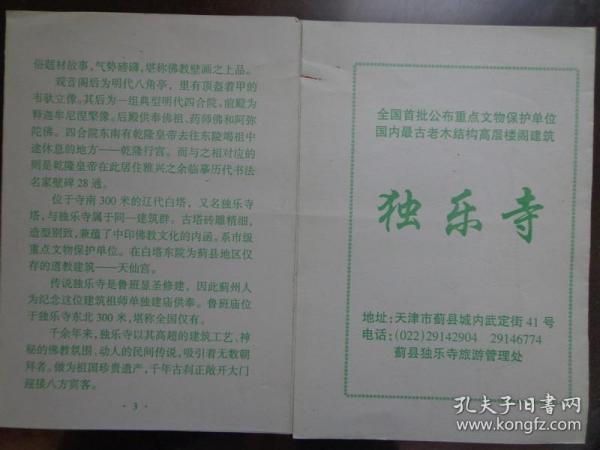 俗题材故事，气势磅礴，堪称佛教壁画之上品。
观音阁后为明代八角亭，里有顶盔着甲的
韦驮立像。其后为一组典型明代四合院，前殿为
释迦牟尼涅槃像。后殿供奉佛祖、药师佛和阿弥
陀佛。四合院东南有乾隆皇帝去往东陵谒祖中
途休息的地方——乾隆行宫。而与之相对应的
则是乾隆皇帝在此居住雅兴之余临摹历代书法
名家壁碑28通。
位于寺南300米的辽代白塔，又名独乐寺
塔，与独乐寺属于同一建筑群。古塔砖雕精细，
造型别致，兼蕴了中印佛教文化的内涵。系市级
重点文物保护单位。在白塔东院为蓟县地区仅
存的道教建筑——天仙宫。
传说独乐寺是鲁班显圣修建，因此蓟州人
为纪念这位建筑祖师单独建庙供奉。鲁班庙位
于独乐寺东北300米，堪称全国仅有。
千余年来，独乐寺以其高超的建筑工艺、神
秘的佛教氛围、动人的民间传说，吸引着无数朝
拜者。做为祖国珍贵遗产，千年古刹正敞开大门
迎接八方宾客。
·3·
全国首批公布重点文物保护单位
国内最古老木结构高层楼阁建筑
独乐寺
地址：天津市蓟县城内武定街41号
电话：(022)29142904 29146774
蓟县独乐寺旅游管理处
孔夫子旧书网
www.kongfz.com